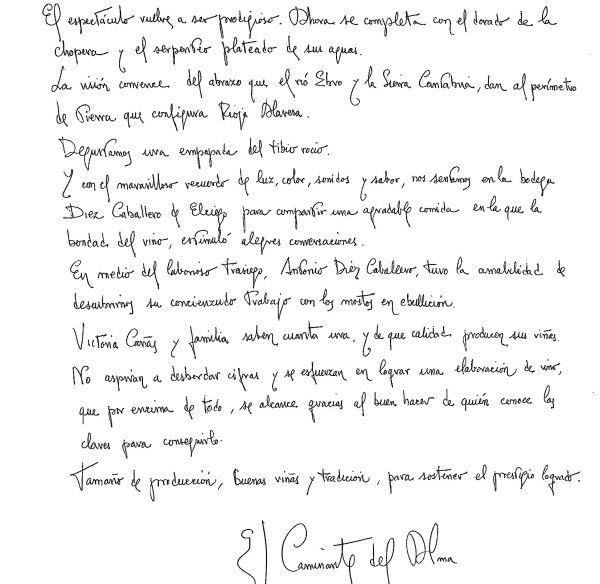 El espectáculo vuelve a ser prodigioso. Ahora se completa con el dorado de la
chopera y el serpenteo plateado de sus aguas.
La visión convence del abrazo que el río Ebro y la Sierra Cantabria, dan al perímetro
de Tierra que configura Rioja Alavesa.
Degustamos uva empapada del tibio rocío.
Y con el maravilloso recuerdo de luz, color, sonidos y sabor, nos sentamos en la bodega
Diez Caballero de Elciego para compartir una agradable comida en la que la
bondad del vino, estimuló alegres conversaciones.
En medio del laborioso Trasiego, Antonio Diéz Caballero, tuvo la amabilidad de
descubrirnos su concienzudo Trabajo con los mostos en ebullición.
Victoria Cañas y familia saben cuanta uva, y de que calidad producen sus viñas.
No aspiran a desbordar cifras y se esfuerzan en lograr una elaboración de vino,
que por encima de todo, se alcance gracias al buen hacer de quién conoce las
claves para conseguirlo.
Tamaño de producción, buenas viñas y tradición, para sostener el prestigio logrado.
El Caminante del Alma